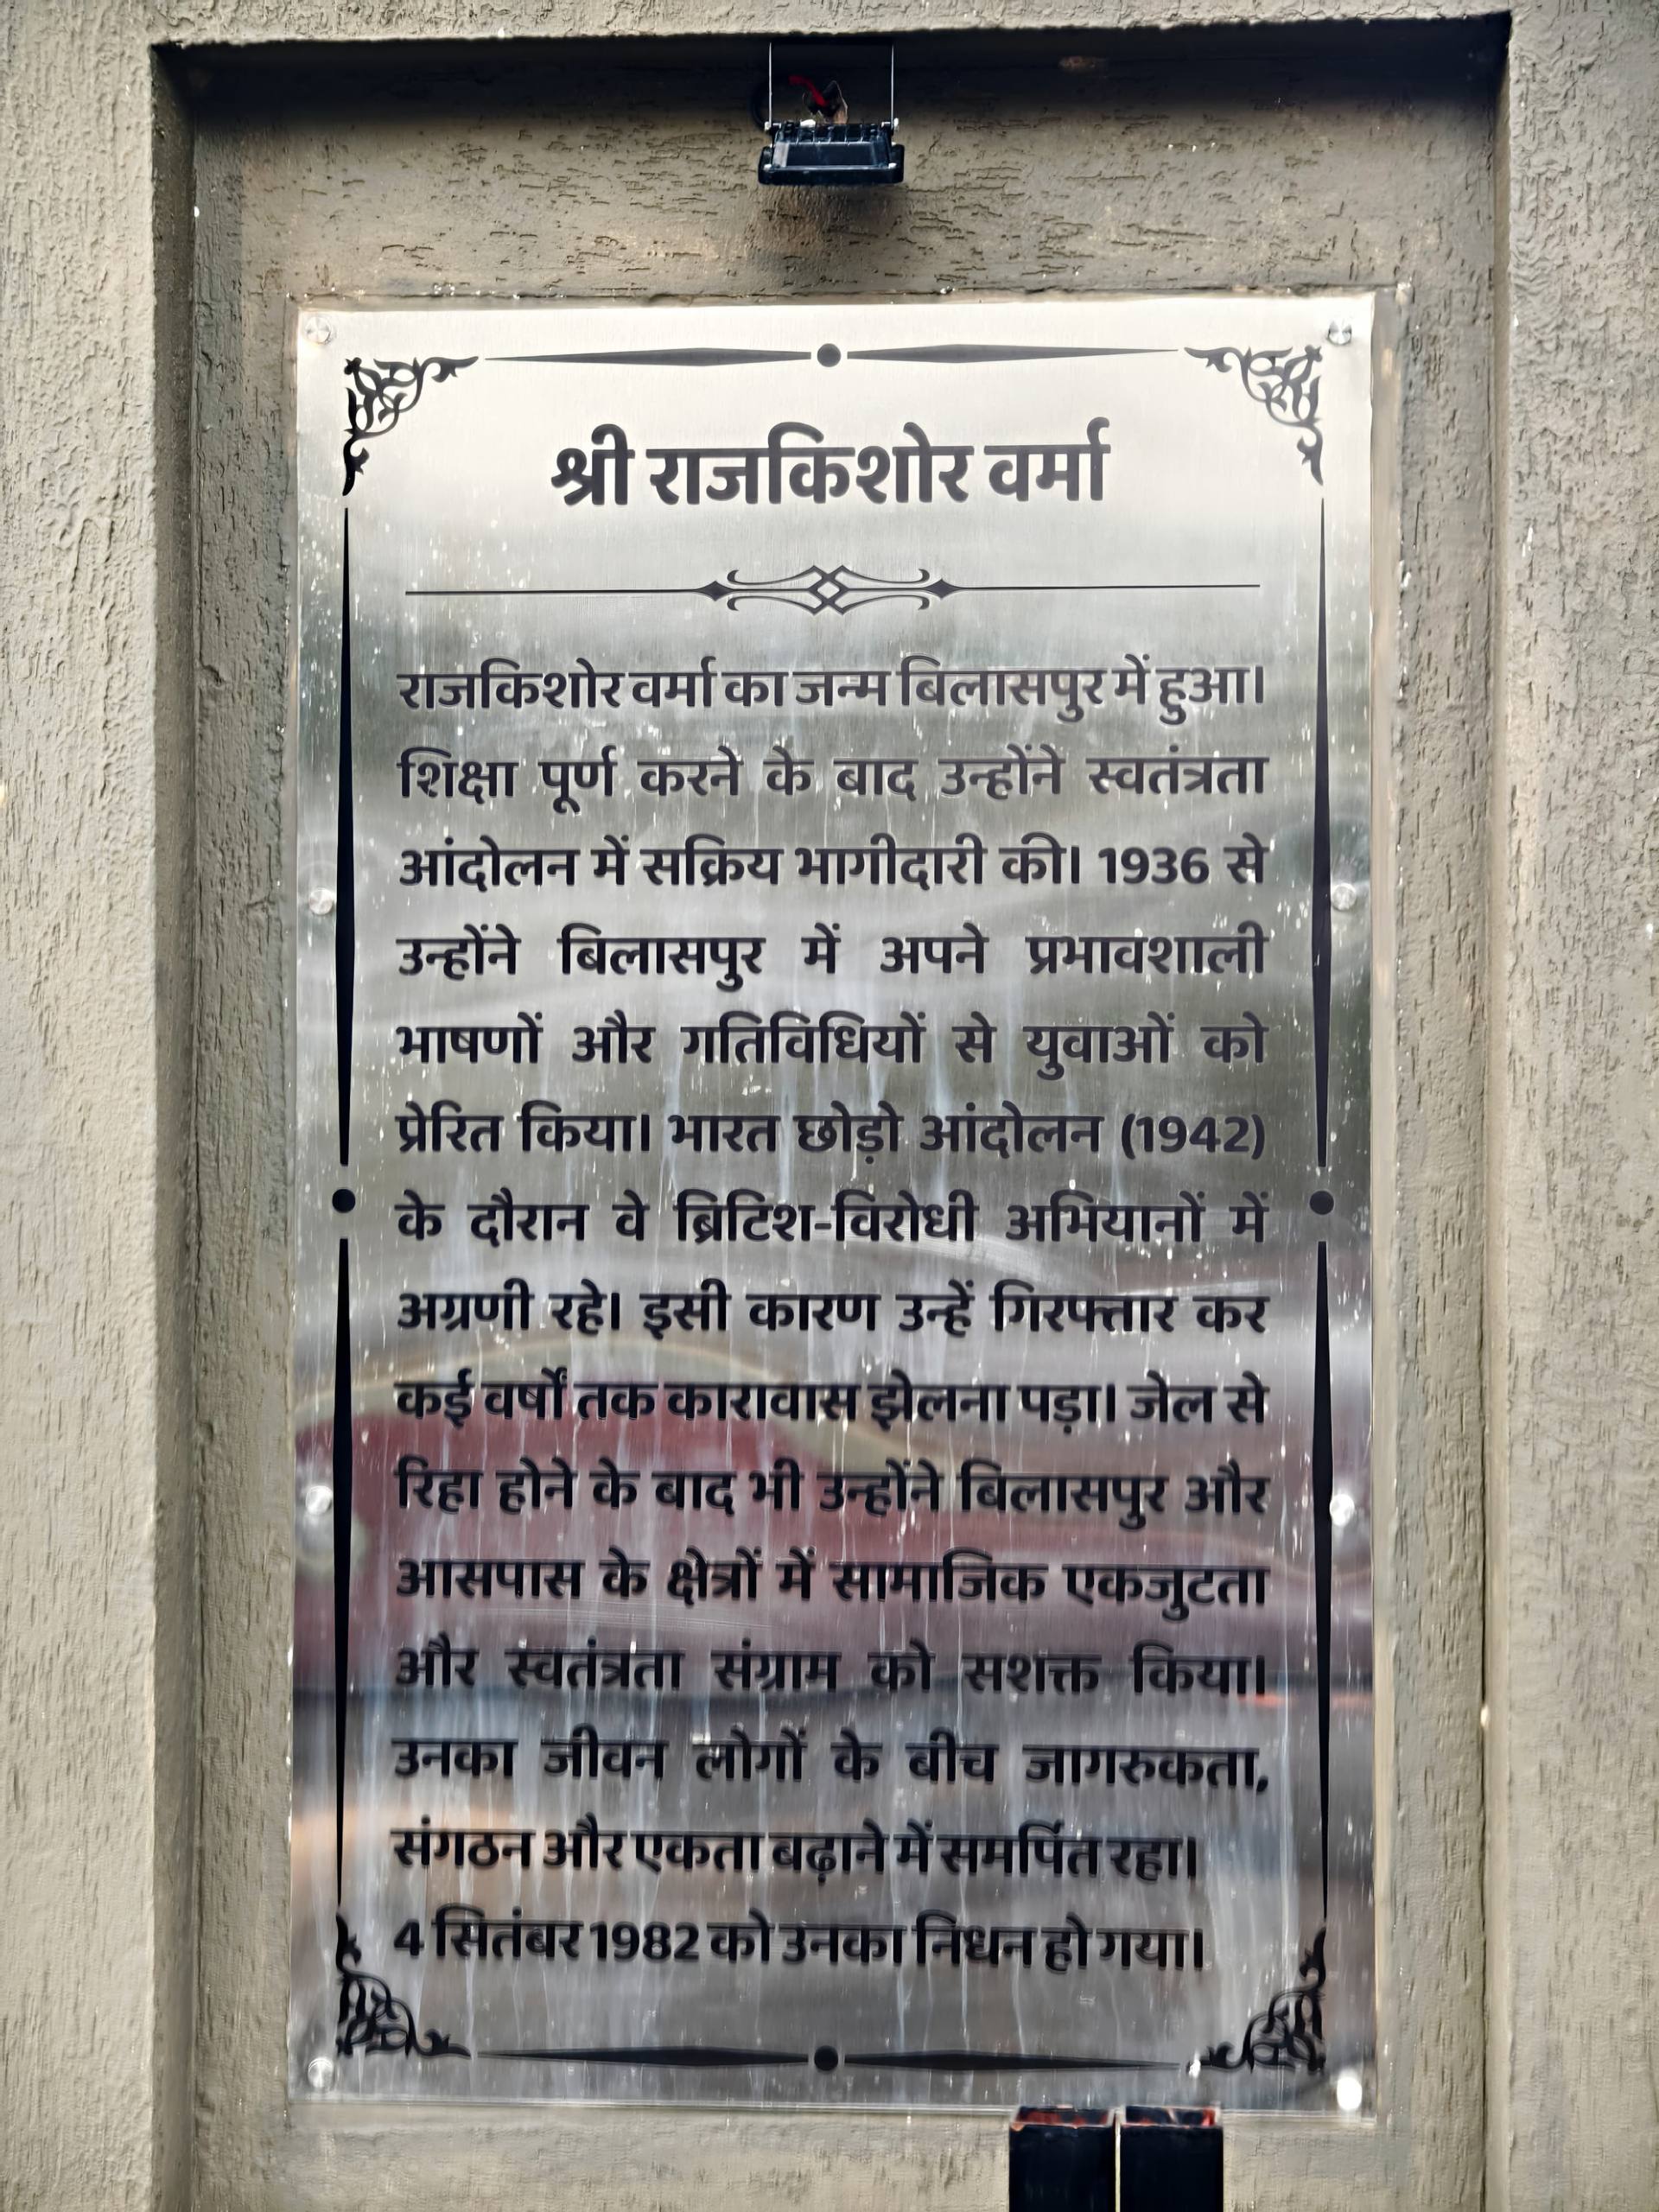 श्री राजकिशोर वर्मा
राजकिशोर वर्मा का जन्म बिलासपुर में हुआ।
शिक्षा पूर्ण करने के बाद उन्होंने स्वतंत्रता
आंदोलन में सक्रिय भागीदारी की। 1936 से
उन्होंने बिलासपुर में अपने प्रभावशाली
भाषणों और गतिविधियों से युवाओं को
प्रेरित किया। भारत छोड़ो आंदोलन (1942)
के दौरान वे ब्रिटिश-विरोधी अभियानों में
अग्रणी रहे। इसी कारण उन्हें गिरफ्तार कर
कई वर्षों तक कारावास झेलना पड़ा। जेल से
रिहा होने के बाद भी उन्होंने बिलासपुर और
आसपास के क्षेत्रों में सामाजिक एकजुटता
और स्वतंत्रता संग्राम को सशक्त किया।
उनका जीवन लोगों के बीच जागरुकता,
संगठन और एकता बढ़ाने में समर्पित रहा।
4 सितंबर 1982 को उनका निधन हो गया।